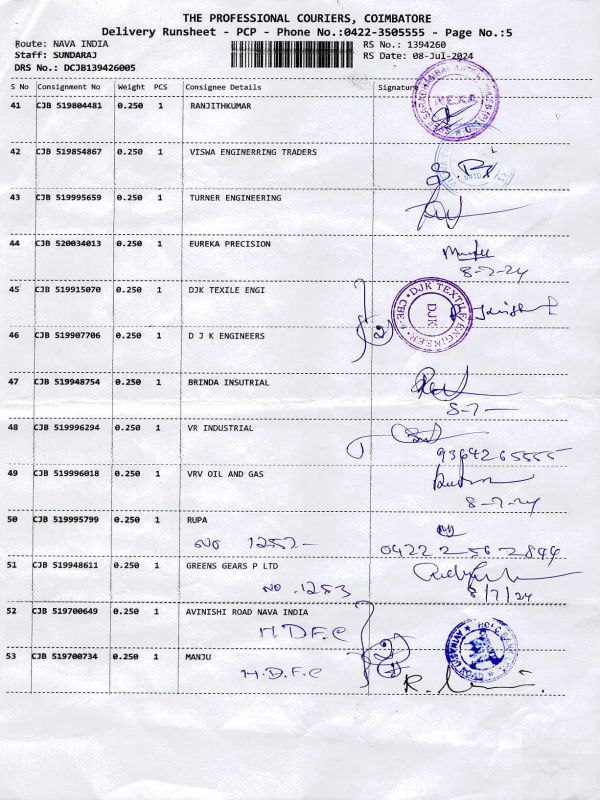 THE PROFESSIONAL COURIERS, COIMBATORE
Delivery Runsheet - PCP - Phone No.:0422-3505555 - Page No.:5
Route: NAVA INDIA RS No.: 1394260
Staff: SUNDARAJ RS Date: 08-Jul-2024
DRS No.: DCJB139426005
S No Consignment No Weight PCS Consignee Details Signature
41 CJB 519804481 0.250 1 RANJITHKUMAR
NEXA
42 CJB 519854867 0.250 1 VISWA ENGINERRING TRADERS
43 CJB 519995659 0.250 1 TURNER ENGINEERING
44 CJB 520034013 0.250 1 EUREKA PRECISION
8-7-24
45 CJB 519915070 0.250 1 DJK TEXILE ENGI
DJK TEXTILE ENGINEER CBE-4
DJK
46 CJB 519907706 0.250 1 D J K ENGINEERS
47 CJB 519948754 0.250 1 BRINDA INSUTRIAL
8-7-
48 CJB 519996294 0.250 1 VR INDUSTRIAL
9364265555
49 CJB 519996018 0.250 1 VRV OIL AND GAS
8-7-24
50 CJB 519995799 0.250 1 RUPA
NO 1257- 0422 2562844
51 CJB 519948611 0.250 1 GREENS GEARS P LTD
NO.1253 8/7/24
52 CJB 519700649 0.250 1 AVINISHI ROAD NAVA INDIA
H.D.F.C
53 CJB 519700734 0.250 1 MANJU
H.D.F.C